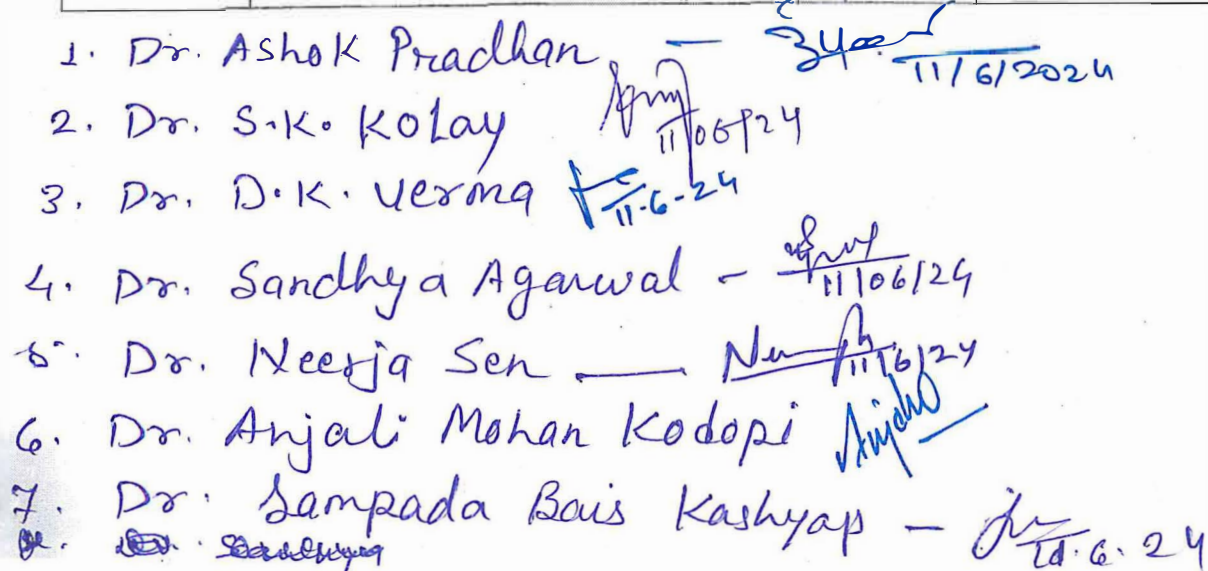 1. Dr. Ashok Pradhan — 11/6/2024
2. Dr. S.K. Kolay 11/06/24
3. Dr. D.K. Verma 11-6-24
4. Dr. Sandhya Agarwal - 11/06/24
5. Dr. Neerja Sen — 11/6/24
6. Dr. Anjali Mohan Kodopi Anjali
7. Dr. Sampada Bais Kashyap - 11.6.24